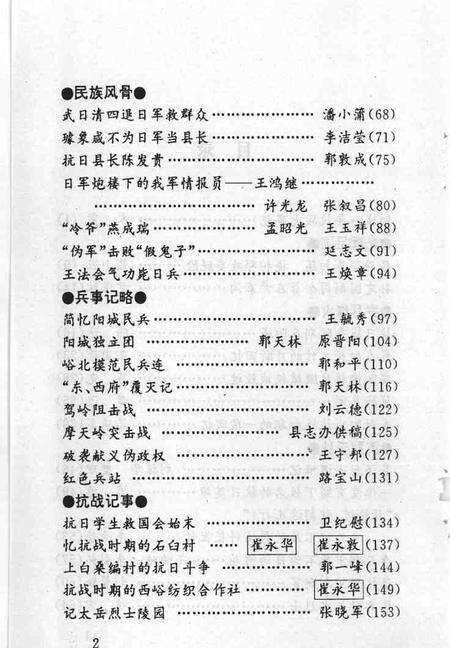 ●民族风骨●
武日清四退日军救群众……………………潘小蒲(68)
璩象咸不为日军当县长……………………李洁莹(71)
抗日县长陈发贵……………………郭敦成(75)
日军炮楼下的我军情报员——王鸿继……………
……………………许光龙 张叙昌(80)
“冷爷”燕成瑞……………………孟昭光 王玉祥(88)
“伪军”击败“假鬼子”……………………延志文(91)
王法会气功毙日兵……………………王焕章(94)
●兵事记略●
简忆阳城民兵……………………王毓秀(97)
阳城独立团……………………郭天林 原晋阳(104)
峪北模范民兵连……………………郭和平(110)
“东、西府”覆灭记……………………郭天林(116)
驾岭阻击战……………………刘云德(122)
摩天岭突击战……………………县志办供稿(125)
破袭献义伪政权……………………王守邦(127)
红色兵站……………………路宝山(131)
●抗战记事●
抗日学生救国会始末……………………卫纪慰(134)
忆抗战时期的石臼村……………崔永华 崔永敦(137)
上白桑编村的抗日斗争……………………郭一峰(144)
抗战时期的西峪纺织合作社……………………崔永华(149)
记太岳烈士陵园……………………张晓军(153)
2